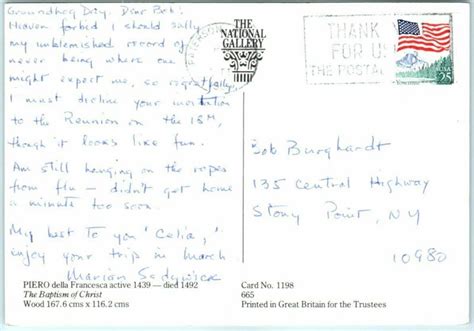 Groundhog Day, Dear Bob:
Heaven forbid I should sully
my unblemished record of
never being where one
might expect me, so regretfully
I must decline your invitation
to the Reunion on the 18th,
though it looks like fun.
Am still hanging on the ropes
from flu - didn't get home
a minute too soon.
My best to you 'Celia,'
enjoy your trip in March
Marian Sedgwick
PIERO della Francesca active 1439 — died 1492
The Baptism of Christ
Wood 167.6 cms x 116.2 cms
THE
NATIONAL
GALLERY
THANK
FOR US
THE POSTAL
25
Bob Burghardt
135 Central Highway
Stony Point, NY
10980
Card No. 1198
665
Printed in Great Britain for the Trustees